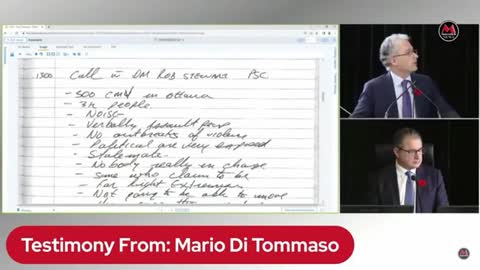 1300 Call w DM ROB STEWART PSC
- 500 CMV in Ottawa
- 3K people
- NOISE
- Verbally assault
- No outbreaks of violence
- Political are very exposed
- Stalemate
- Nobody really in charge
- Some who claim to be
- Far Right Extremism
- Not going to be able to move
Testimony From: Mario Di Tommaso